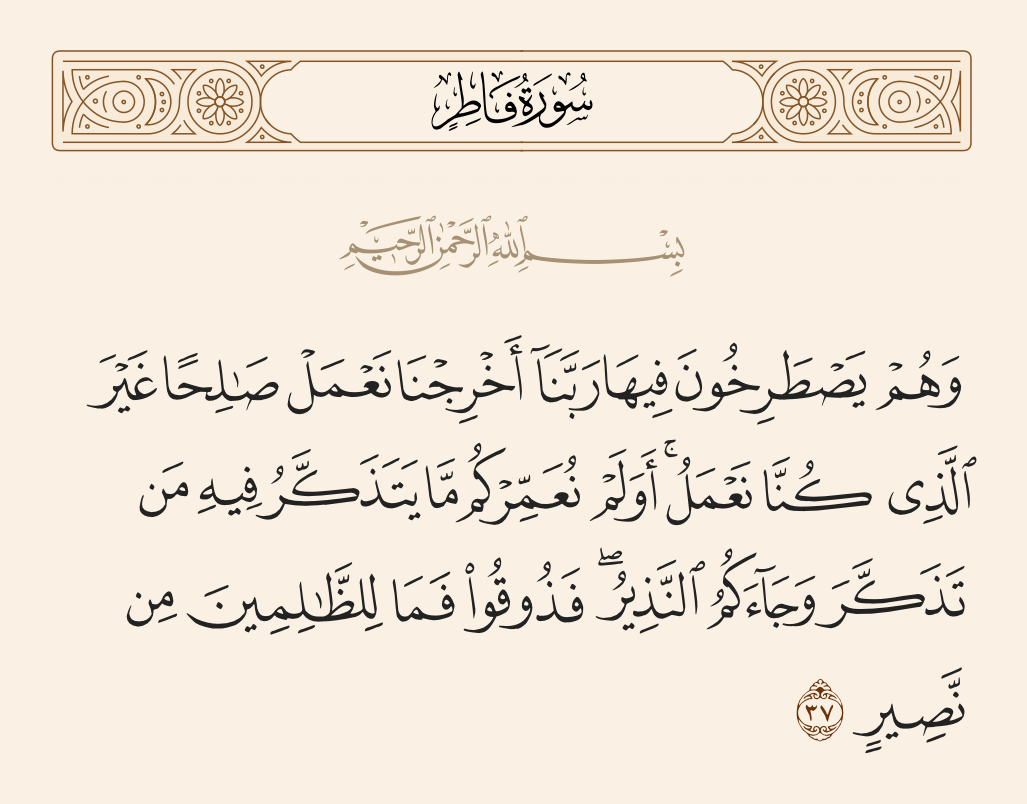 سُورَةُ فَاطِرٍ
بِسْمِ ٱللَّهِ ٱلرَّحْمَٰنِ ٱلرَّحِيمِ
وَهُمْ يَصْطَرِخُونَ فِيهَا رَبَّنَآ أَخْرِجْنَا نَعْمَلْ صَـٰلِحًا غَيْرَ
ٱلَّذِى كُنَّا نَعْمَلُ ۚ أَوَلَمْ نُعَمِّرْكُم مَّا يَتَذَكَّرُ فِيهِ مَن
تَذَكَّرَ وَجَآءَكُمُ ٱلنَّذِيرُ ۖ فَذُوقُوا۟ فَمَا لِلظَّـٰلِمِينَ مِن
نَّصِيرٍ ٣٧